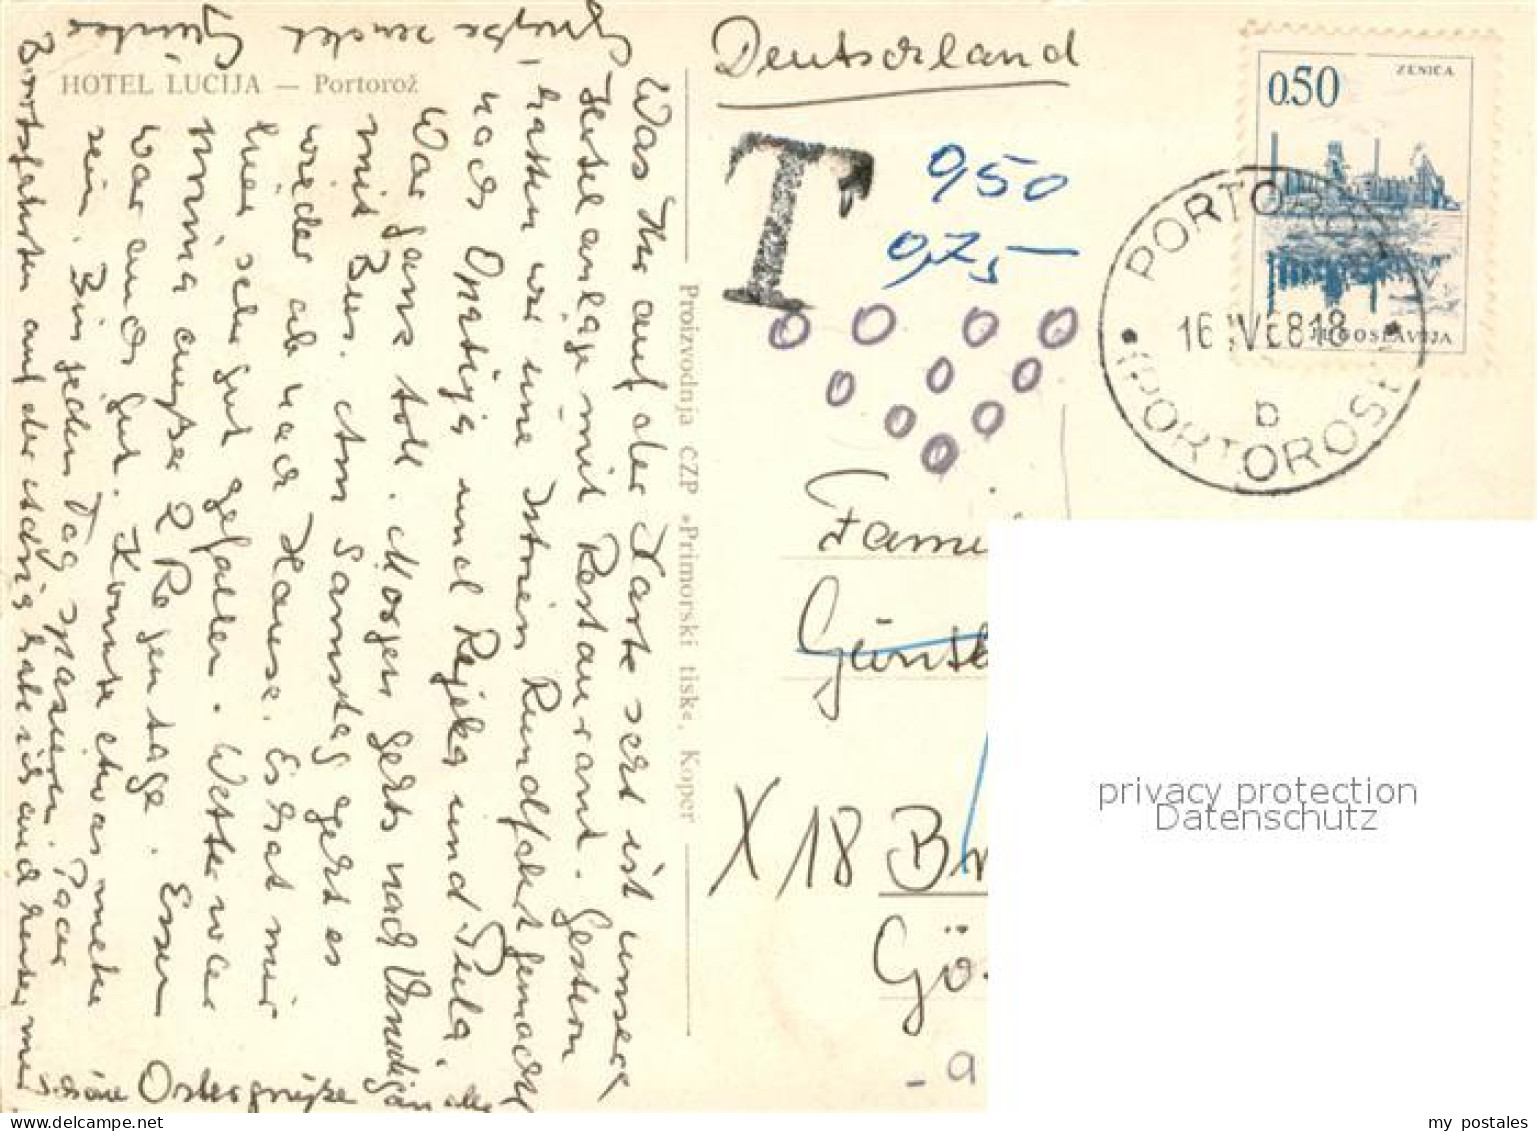 HOTEL LUCIJA — Portorož
Was Ihr auf der Karte seht ist unsere
Hotelanlage mit Restaurant. Gestern
hatten wir eine Istrien Rundfahrt gemacht,
nach Opatija und Rijeka und Pula,
War ganz toll. Morgen gehts nach Venedig
mit Bus. Am Samstag geht es
wieder ab nach Hause. Es hat mir
hier sehr gut gefallen. Wetter war
prima außer 2 Regentage. Essen
war auch gut. Könnte etwas mehr
sein. Bin jeden Tag spazieren. Paar
Bootsfahrten auf der Adria habe ich auch hinter mir
Schöne Ostergrüße
Grüße sendet
Günter
Proizvodnja CZP »Primorski tisk«, Koper
Deutschland
T
0,50
0,75
ZENICA
0.50
JUGOSLAVIJA
PORTOROŽ
16 IV 68 18
b
(PORTOROSE)
Fami
Günth
X 18 Br
Gö
- a
privacy protection
Datenschutz
my postales